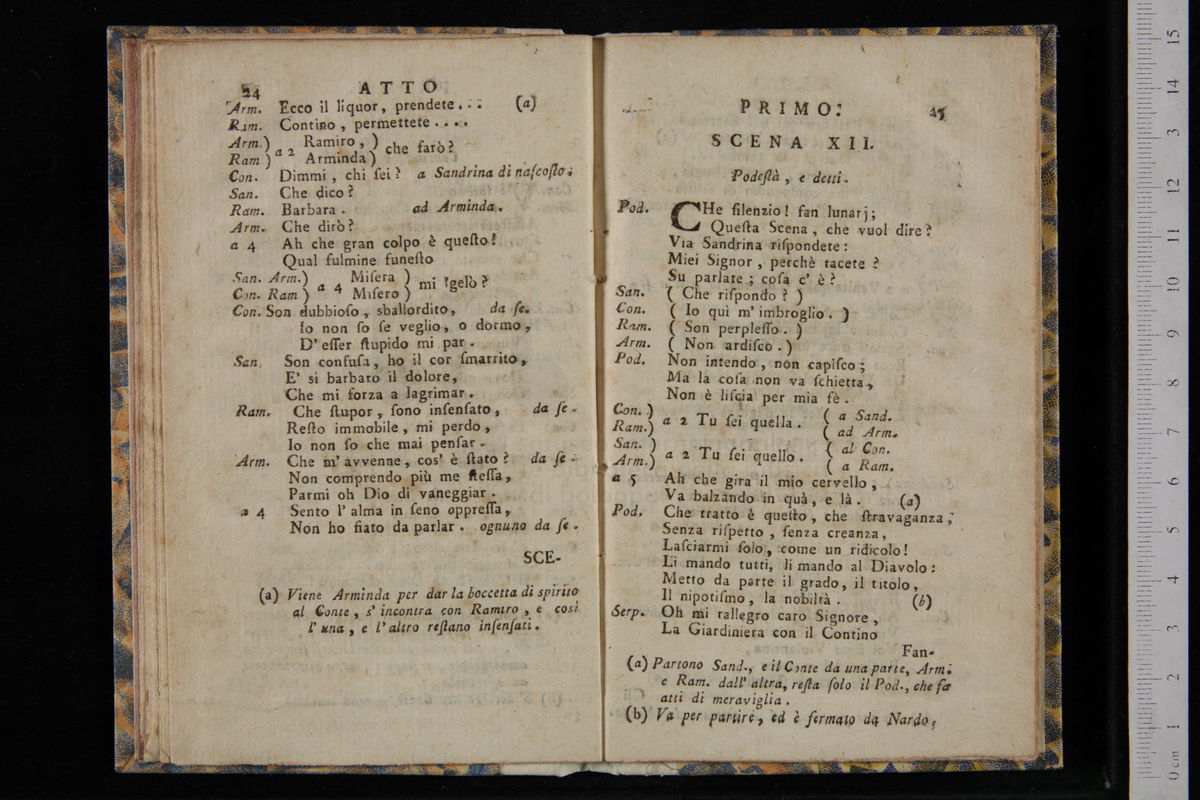 24 ATTO
Arm. Ecco il liquor, prendete... (a)
Ram. Contino, permettete....
Arm.) a 2 Ramiro, ) che farò?
Ram ) Arminda)
Con. Dimmi, chi ſei? a Sandrina di naſcoſto.
San. Che dico?
Ram. Barbara. ad Arminda.
Arm. Che dirò?
a 4 Ah che gran colpo è queſto!
Qual fulmine funeſto
San. Arm.) a 4 Miſera ) mi gelò?
Con. Ram ) Miſero )
Con. Son dubbioſo, sbalordito, da ſe.
Io non ſo ſe veglio, o dormo,
D'eſſer ſtupido mi par.
San Son confuſa, ho il cor ſmarrito,
E' sì barbaro il dolore,
Che mi forza a lagrimar.
Ram. Che ſtupor, ſono inſenſato, da ſe.
Reſto immobile, mi perdo,
Io non ſo che mai penſar.
Arm. Che m'avvenne, cos'è ſtato? da ſe.
Non comprendo più me ſteſſa,
Parmi oh Dio di vaneggiar.
a 4 Sento l'alma in ſeno oppreſſa,
Non ho fiato da parlar. ognuno da ſe.
SCE-
(a) Viene Arminda per dar la boccetta di spirito
al Conte, s'incontra con Ramiro, e così
l'una, e l'altro reſtano inſenſati.
PRIMO. 25
SCENA XII.
Podeſtà, e detti.
Pod. CHe ſilenzio! ſan lunarj;
Queſta Scena, che vuol dire?
Via Sandrina riſpondete:
Miei Signor, perchè tacete?
Su parlate; coſa c'è?
San. ( Che riſpondo? )
Con. ( Io quì m'imbroglio. )
Ram. ( Son perpleſſo. )
Arm. ( Non ardiſco. )
Pod. Non intendo, non capiſco;
Ma la coſa non va ſchietta,
Non è liſcia per mia fè.
Con. ) a 2 Tu ſei quella. ( a Sand.
Ram.) ( ad Arm.
San. ) a 2 Tu ſei quello. ( al Con.
Arm.) ( a Ram.
a 5 Ah che gira il mio cervello,
Va balzando in quà, e là. (a)
Pod. Che tratto è queſto, che ſtravaganza,
Senza riſpetto, ſenza creanza,
Laſciarmi ſolo, come un ridicolo!
Li mando tutti, li mando al Diavolo:
Metto da parte il grado, il titolo,
Il nipotiſmo, la nobiltà. (b)
Serp. Oh mi rallegro caro Signore,
La Giardiniera con il Contino
Fan-
(a) Partono Sand., e il Conte da una parte, Arm.
e Ram. dall'altra, reſta ſolo il Pod., che fa
atti di meraviglia.
(b) Va per partire, ed è fermato da Nardo,